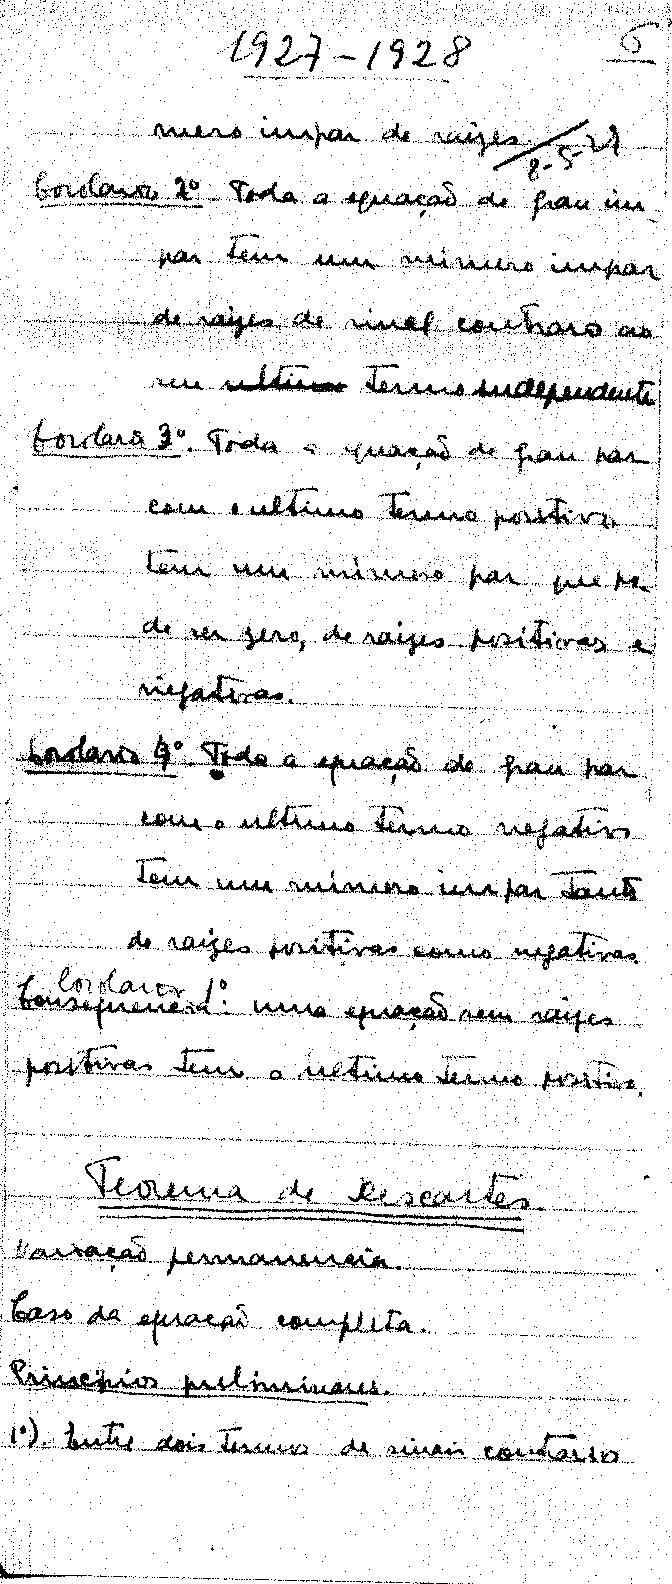 1927-1928 6
mero impar de raizes. 2-5-27
Corolario 2º Toda a equação de grau im-
par tem um número impar
de raizes de sinal contrario ao
seu ultimo termo independente
Corolario 3º. Toda a equação de grau par
com o ultimo termo positivo
tem um número par, que po-
de ser zero, de raizes positivas e
negativas.
Corolario 4º Toda a equação de grau par
com o ultimo termo negativo
tem um número impar tanto
de raizes positivas como negativas.
Corolario 1º
Consequencia: uma equação sem raizes
positivas tem o ultimo termo positivo.
Teorema de Descartes.
Variação permanencia.
Caso da equação completa.
Principios preliminares.
1º). Entre dois termos de sinais contrarios